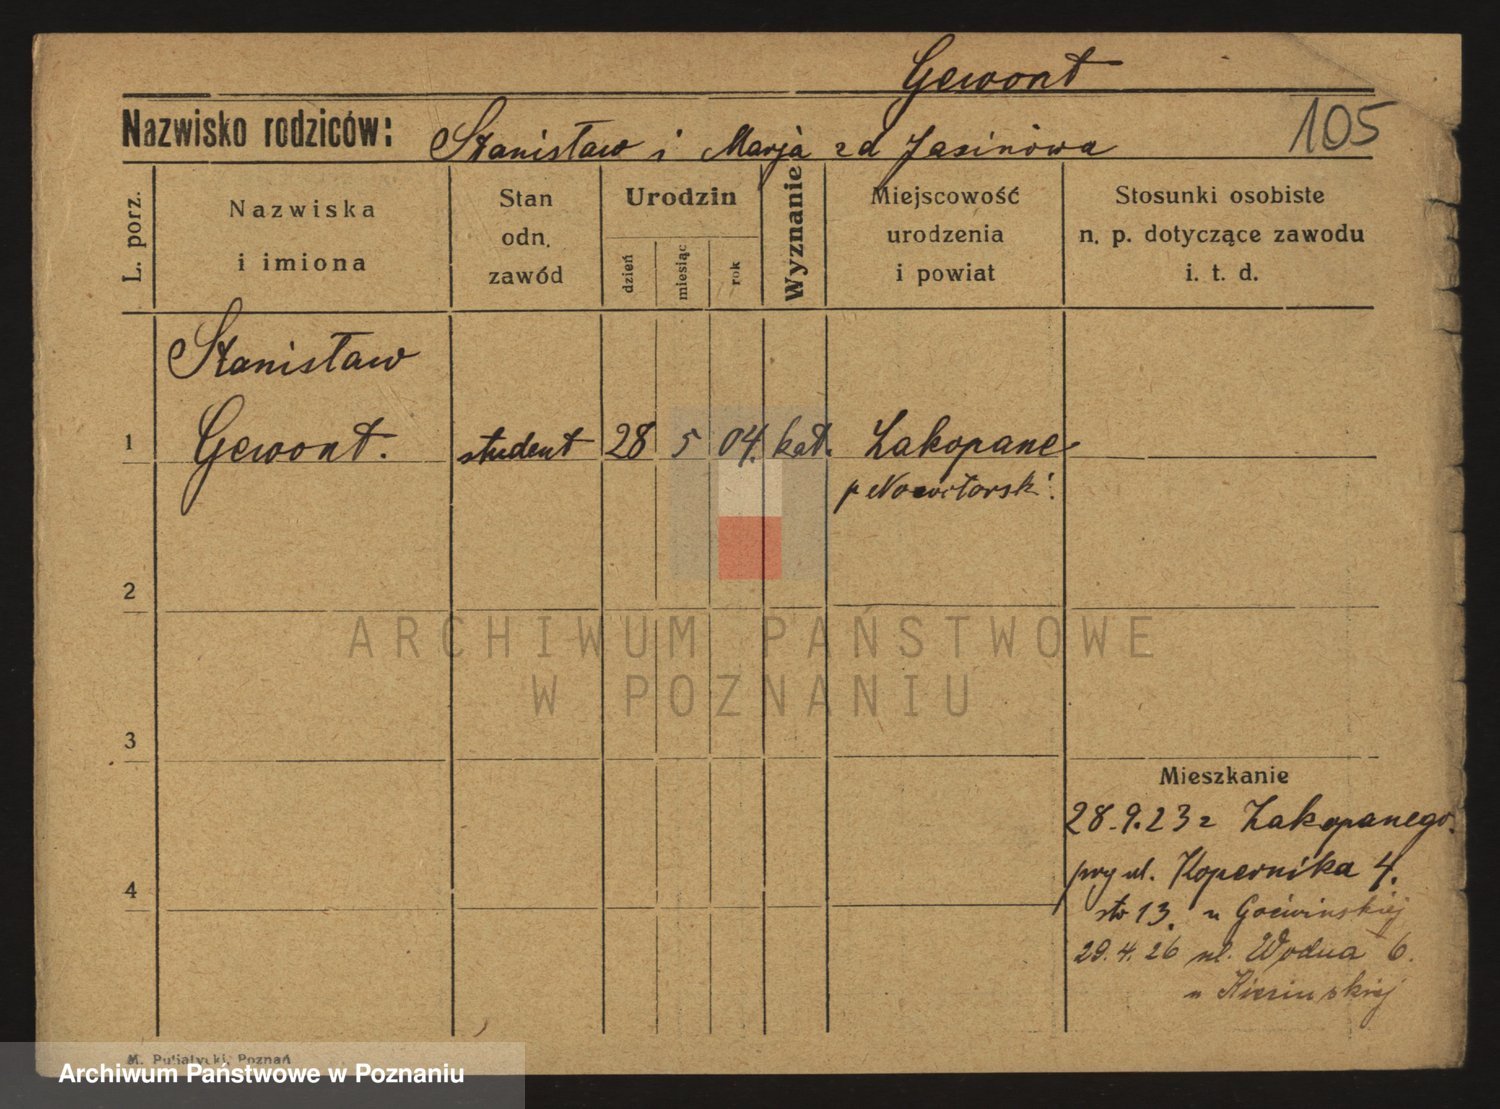 Gewont
Nazwisko rodziców: Stanisław i Marja zd Jasinówa
105
L. porz.
Nazwiska
i imiona
Stan
odn.
zawód
Urodzin
dzień
miesiąc
rok
Wyznanie
Miejscowość
urodzenia
i powiat
Stosunki osobiste
n. p. dotyczące zawodu
i. t. d.
Stanisław
1 Gewont. student 28 5 04. kat. Zakopane
p Nowotorski.
2
ARCHIWUM PAŃSTWOWE
W POZNANIU
3
Mieszkanie
28.9.23 z Zakopanego.
przy ul. Kopernika 4.
str 13. u
4
29.4.26 ul. Wodna 6.
u
M. Poznań
Archiwum Państwowe w Poznaniu